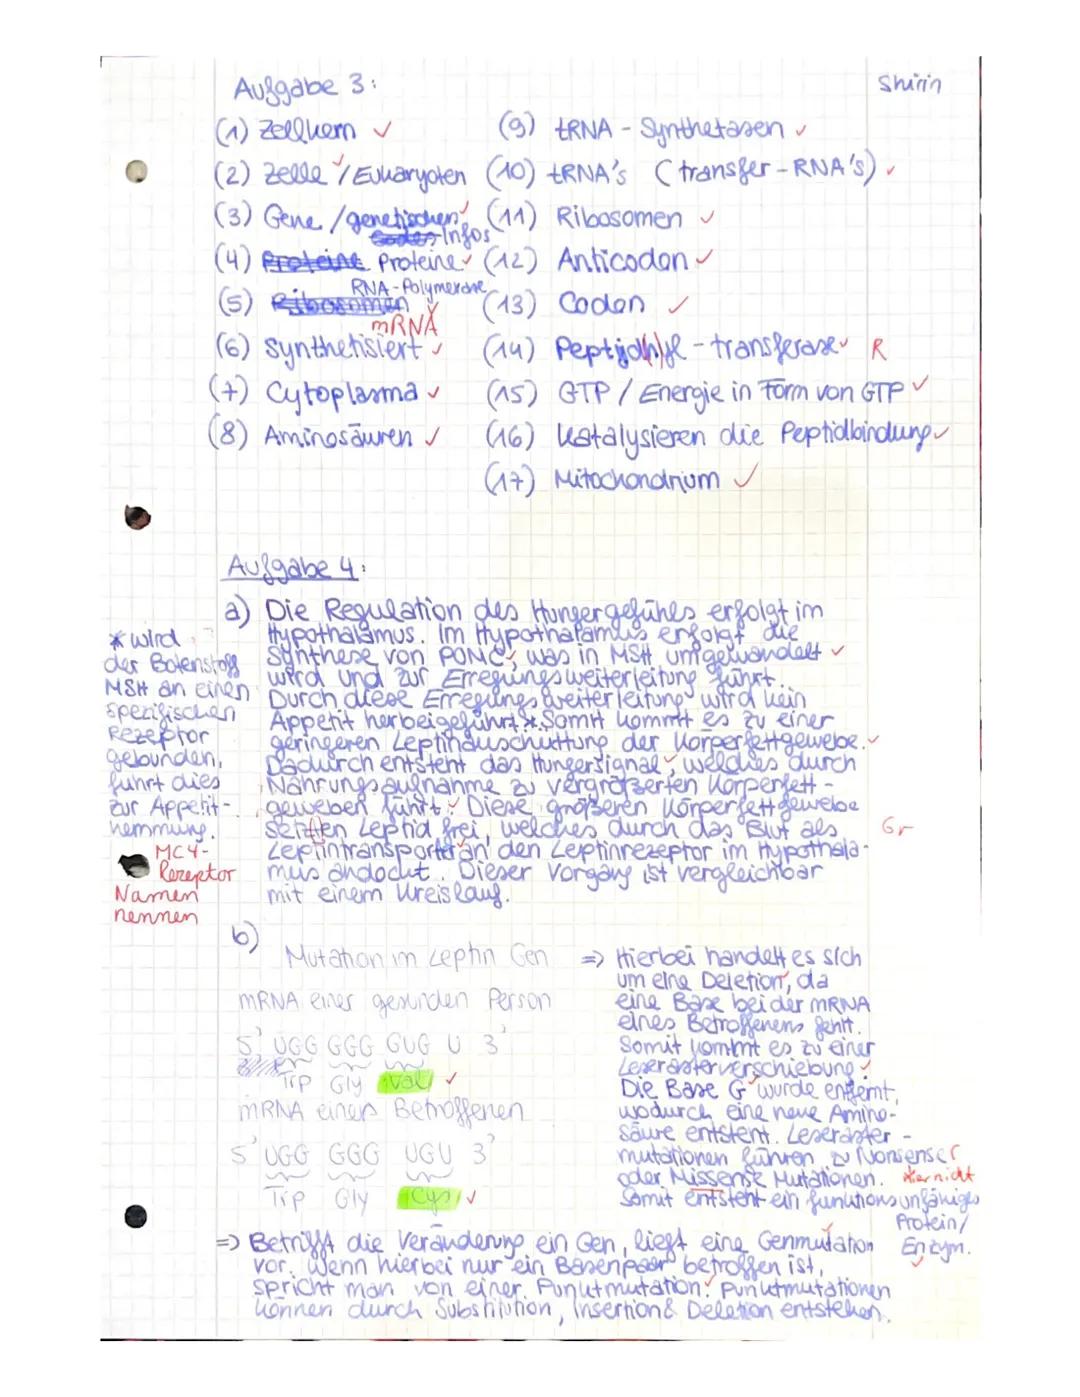 Shirin
Aufgabe 3:
(1) Zellkern ✓
(2) Zelle ✓ / Eukaryoten
(3) Gene / genetischen ✓ Infos
(4) Proteine ✓
(5) RNA-Polymerase
mRNA
(6) synthetisiert ✓
(7) Cytoplasma ✓
(8) Aminosäuren ✓
(9) tRNA - Synthetasen ✓
(10) tRNA's (transfer-RNA's) ✓
(11) Ribosomen ✓
(12) Anticodon ✓
(13) Codon ✓
(14) - transferase ✓ R
(15) GTP / Energie in Form von GTP ✓
(16) katalysieren die Peptidbindung ✓
(17) Mitochondrium ✓
Aufgabe 4:
a) Die Regulation des Hungergefühls erfolgt im
Hypothalamus. Im Hypothalamus erfolgt die
Synthese von POMC ✓, was in MSH umgewandelt ✓
wird und zur Erregungsweiterleitung führt.
Durch diese Erregungsweiterleitung wird kein
Appetit herbeigeführt.* Somit kommt es zu einer
geringeren Leptinauschüttung der Körperfettgewebe. ✓
Dadurch entsteht das Hungersignal ✓, welches durch
Nahrungsaufnahme zu vergrößerten Körperfett-
geweben führt. ✓ Diese größeren Körperfettgewebe
setzten Leptid frei, welches durch das Blut als Gr
Leptintransporter an den Leptinrezeptor im Hypothala-
mus andockt. Dieser Vorgang ist vergleichbar
mit einem Kreislauf.
* wird ?
der Botenstoff
MSH an einen
spezifischen
Rezeptor
gebunden,
führt dies
zur Appetit-
hemmung.
MC4-
Rezeptor
Namen
nennen
b)
Mutation im Leptin Gen
mRNA einer gesunden Person
5' UGG GGG GUG U 3'
Trp Gly Val ✓
mRNA eines Betroffenen
5' UGG GGG UGU 3'
Trp Gly Cys ✓
=> Hierbei handelt es sich
um eine Deletion ✓, da
eine Base bei der mRNA
eines Betroffenens fehlt.
Somit kommt es zu einer
Leserasterverschiebung. ✓
Die Base G ✓ wurde entfernt,
wodurch eine neue Amino-
säure entsteht. Leseraster-
mutationen führen zu Nonsense r
oder Missense Mutationen. hier nicht
Somit entsteht ein funktionsunfähiges
Protein/
Enzym. ✓
=> Betrifft die Veränderung ein Gen, liegt eine Genmutation ✓
vor. Wenn hierbei nur ein Basenpaar betroffen ist,
spricht man von einer Punktmutation. ✓ Punktmutationen
können durch Substitution, Insertion & Deletion entstehen.